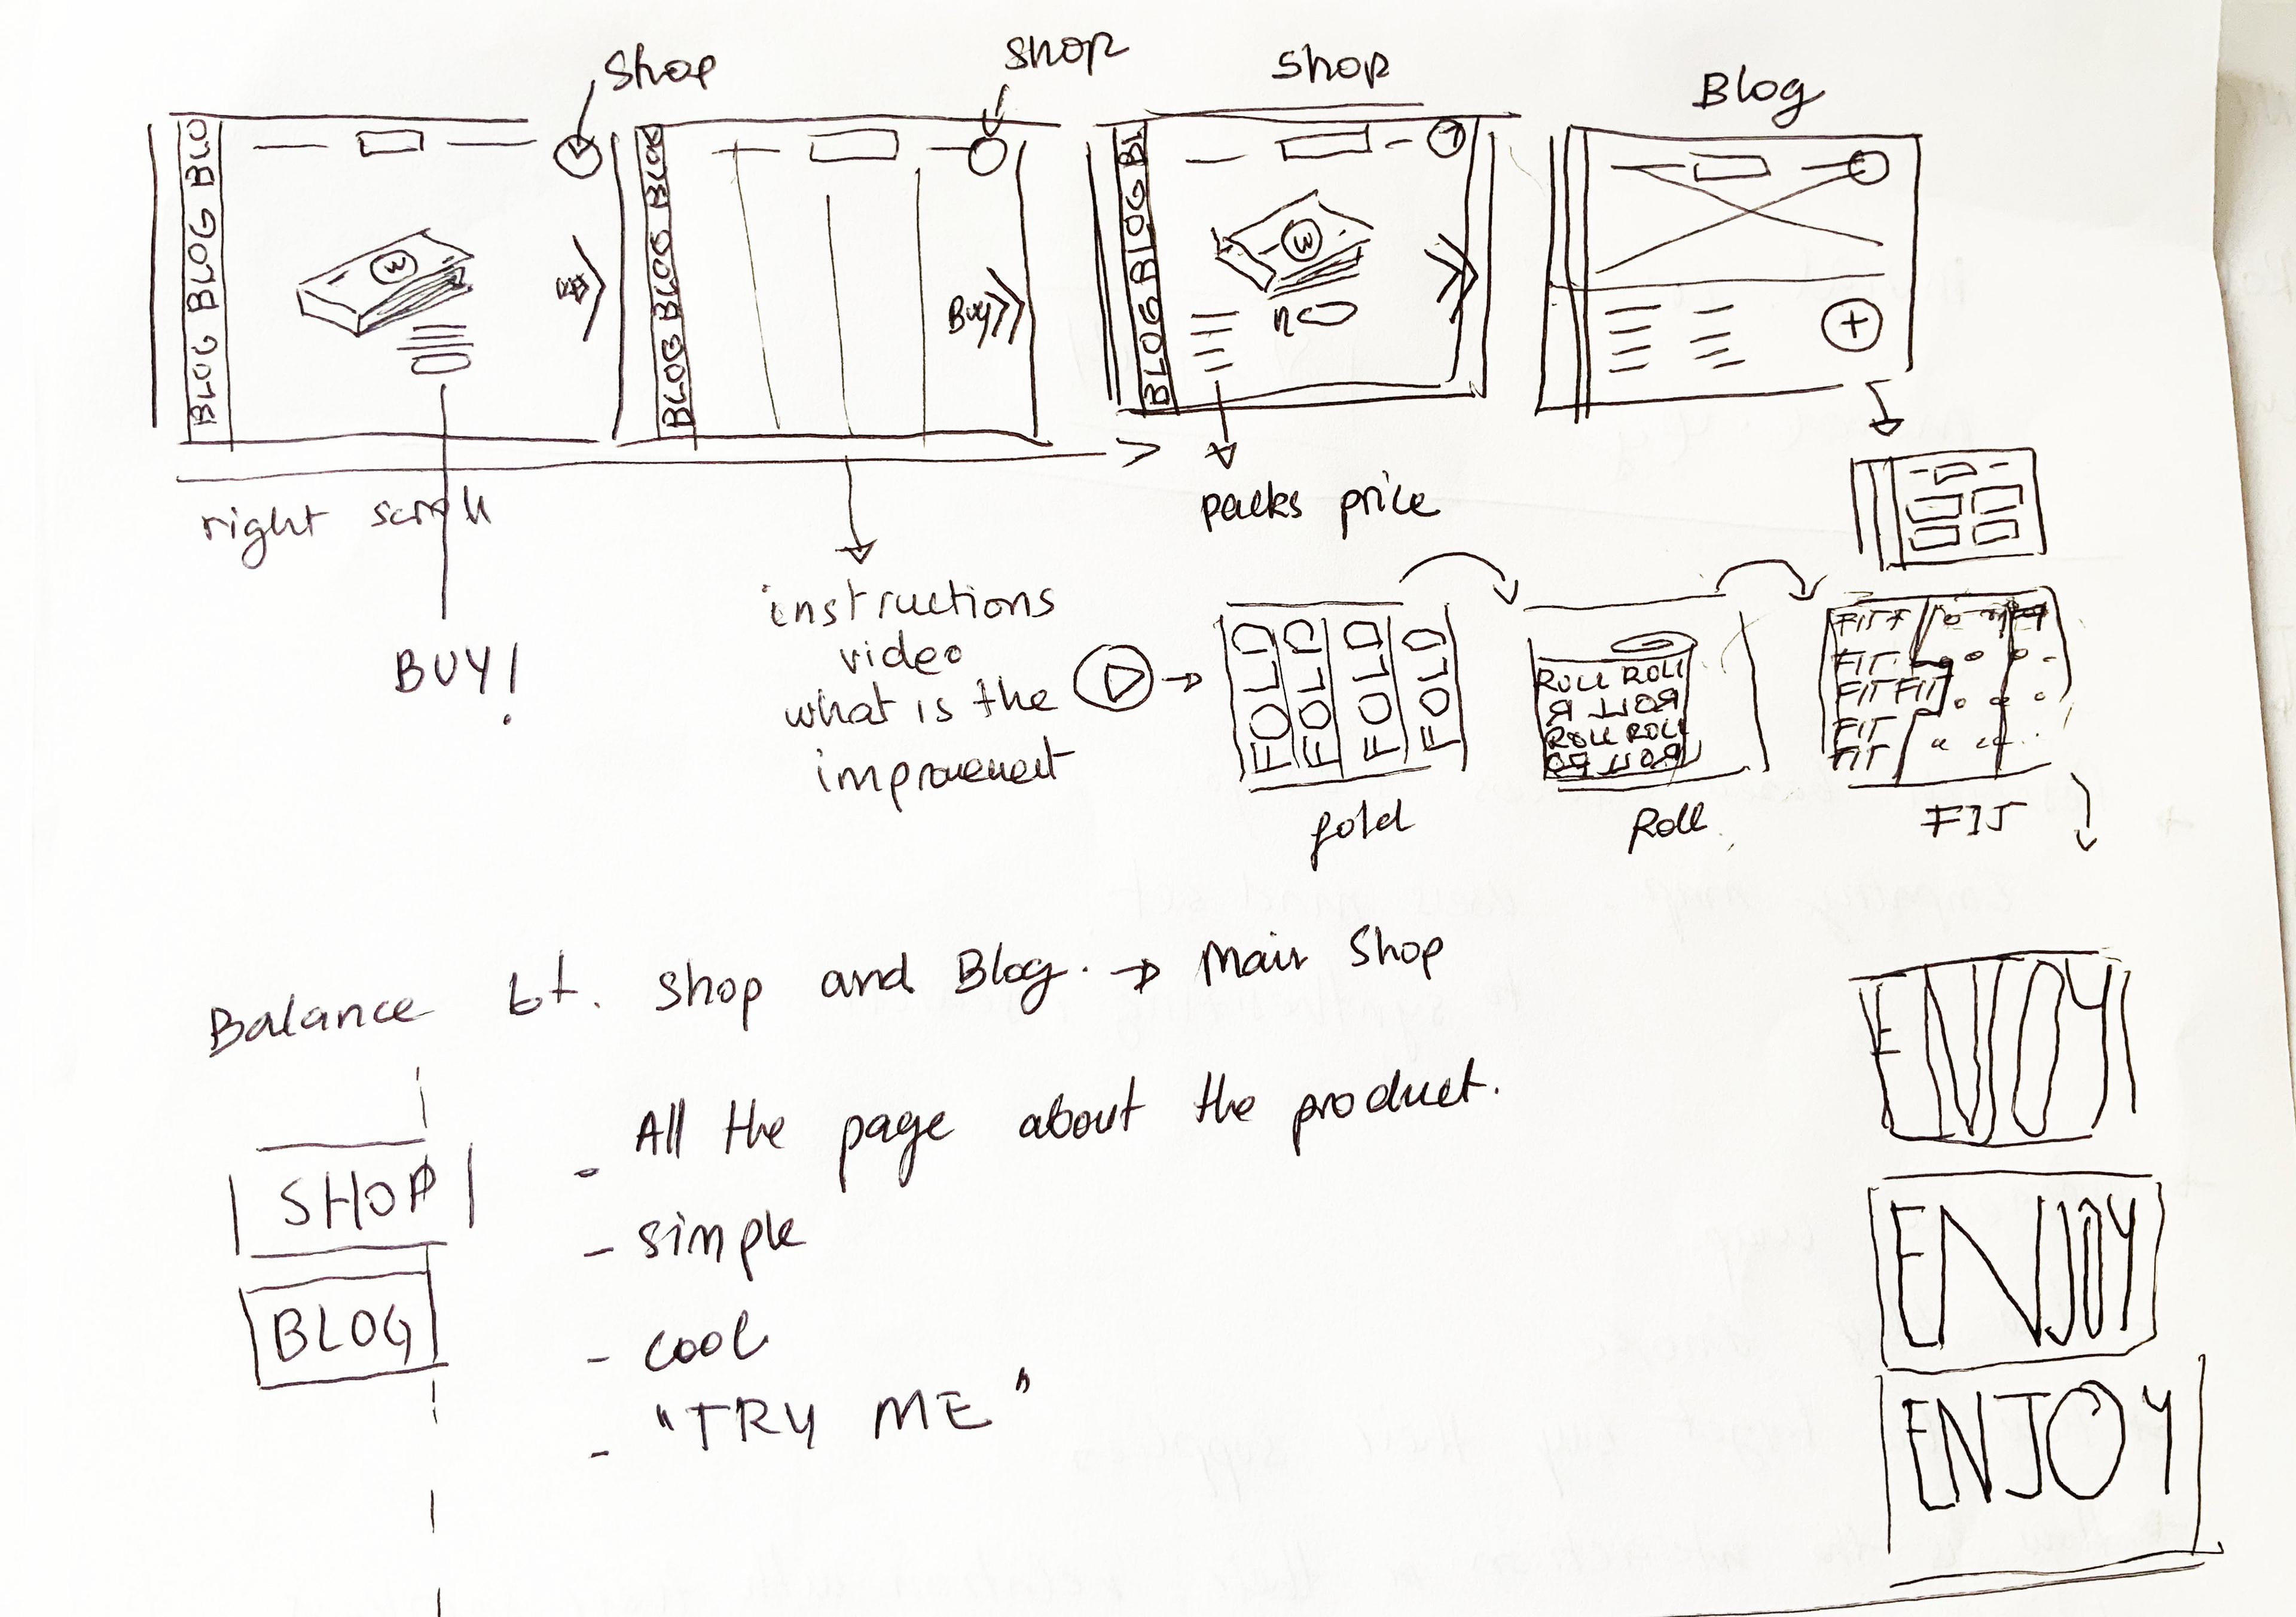 Shop
Shop
Shop
Blog
BLOG BLOG BLO
BLOG BLOG BLOG
BLOG BLOG BL
W
W
Buy
n
right scroll
BUY!
packs price
instructions
video
what is the
improvement
FOLD
FOLD
FOLD
FOLD
fold
ROLL ROLL
ROLL
ROLL ROLL
ROLL
Roll
FIT
FIT
FIT FIT
FIT
FIT
FIT
Balance bt. Shop and Blog. → Main Shop
SHOP
BLOG
- All the page about the product.
- simple
- cool
- "TRY ME"
ENJOY
ENJOY
ENJOY